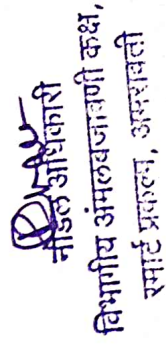 नोडल अधिकारी
विभागीय अंमलबजावणी कक्ष,
स्मार्ट प्रकल्प, अमरावती